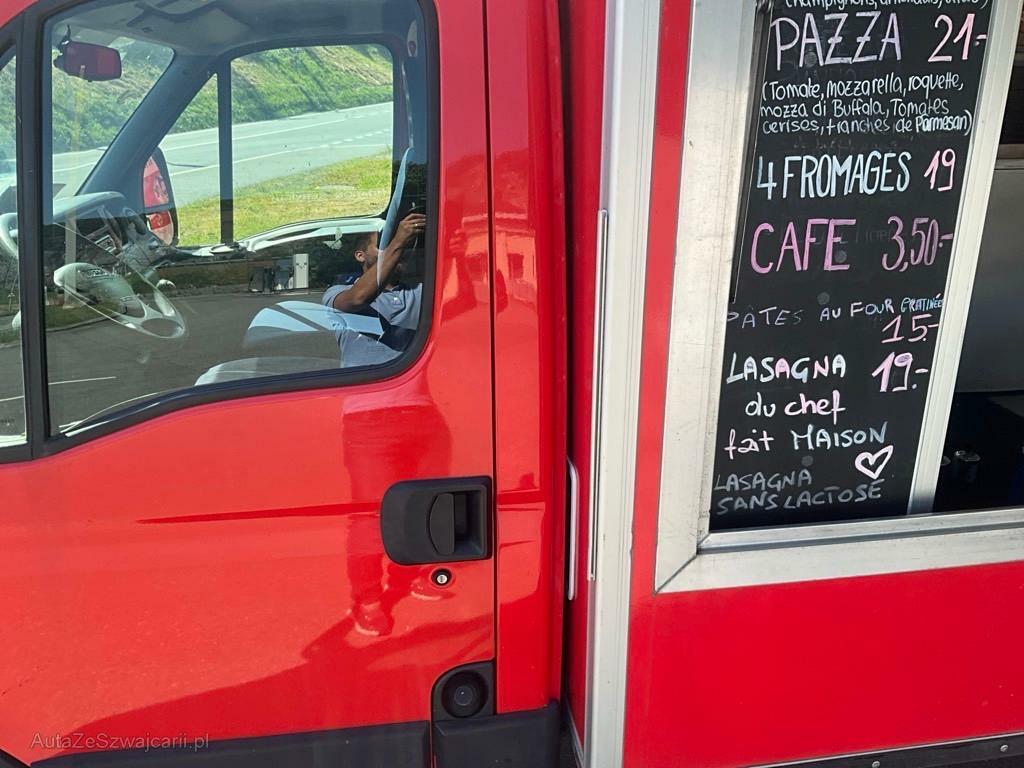 champignons, artichauts, olives)
PAZZA 21.-
(Tomate, mozzarella, roquette,
mozza di Buffala, Tomates
cerises, tranches de Parmesan)
4 FROMAGES 19
CAFE 3,50.-
PÂTES AU FOUR GRATINÉE
15.-
LASAGNA 19.-
du chef
fait MAISON
LASAGNA
SANS LACTOSE
AutaZeSzwajcarii.pl